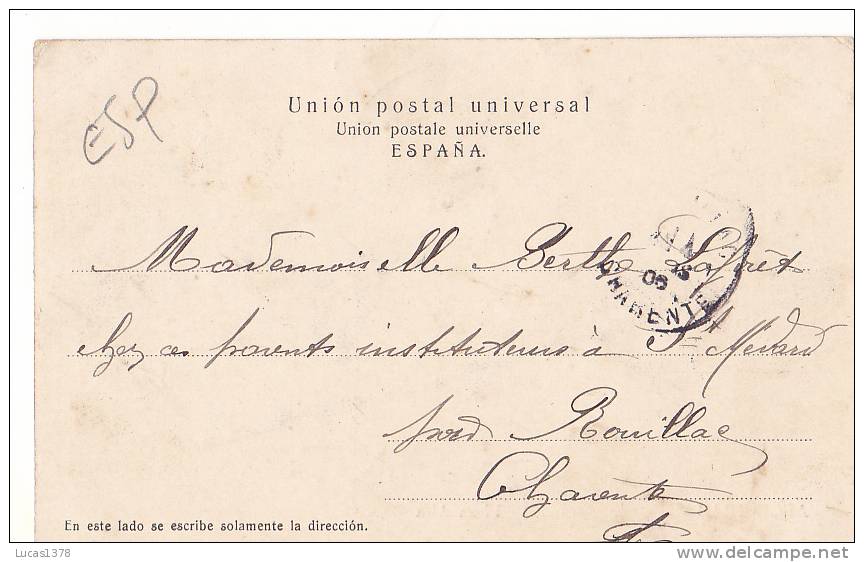 ESP
Unión postal universal
Union postale universelle
ESPAÑA.
Mademoiselle Berthe
chez ses parents instituteurs à St Médard
Rouillac
Charente
CHARENTE
05
En este lado se escribe solamente la dirección.
Lucas1378
delcampe.net